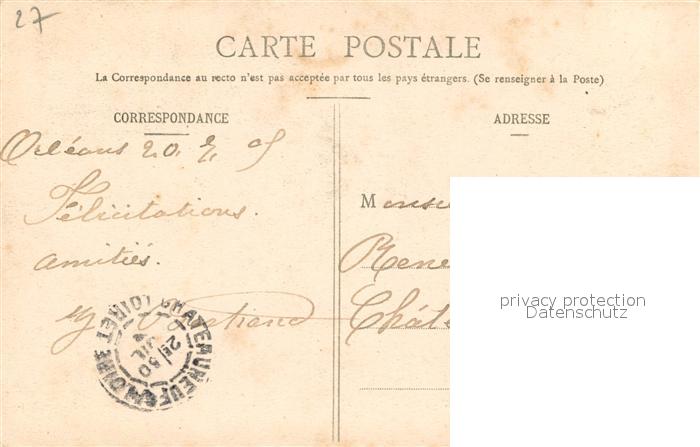 27
CARTE POSTALE
La Correspondance au recto n'est pas acceptée par tous les pays étrangers. (Se renseigner à la Poste)
CORRESPONDANCE
Orléans 20. 05
Félicitations.
amitiés.
CHATEAUNEUF S/ LOIRE LOIRET
ADRESSE
Monsie
Rene
Châte
privacy protection
Datenschutz